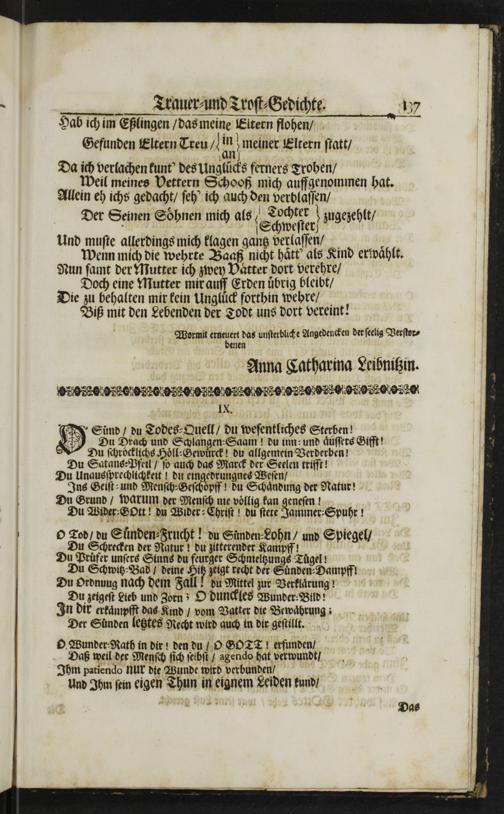 Trauer-und Trost-Gedichte. 137
Hab ich im Eßlingen / das meine Eltern flohen /
Gefunden Eltern Treu / {in / an} meiner Eltern statt /
Da ich verlachen kunt' des Unglücks ferners Trohen /
Weil meines Vettern Schooß mich auffgenommen hat.
Allein eh ichs gedacht / seh' ich auch den verblassen /
Der Seinen Söhnen mich als / {Tochter / Schwester} zugezehlt /
Und muste allerdings mich klagen gantz verlassen /
Wenn mich die wehrte Baaß nicht hätt' als Kind erwählt.
Nun samt der Mutter ich zwey Vätter dort verehre /
Doch eine Mutter mir auff Erden übrig bleibt /
Die zu behalten mir kein Unglück forthin wehre /
Biß mit den Lebenden der Todt uns dort vereint!
Wormit erneuert das unsterbliche Angedencken der seelig Verstor-
benen
Anna Catharina Leibnitzin.
IX.
DU Sünd / du Todes-Quell / du wesentliches Sterben!
Du Drach und Schlangen-Saam! du inn- und äussers Gifft!
Du schröcklichs Höll-Gewürck! du allgemein Verderben!
Du Satans-Pfeil / so auch das Marck der Seelen trifft!
Du Unaussprechlichkeit! du eingedrungnes Wesen /
Ins Geist- und Mensch-Geschöpff! du Schändung der Natur!
Du Grund / warum der Mensch nie völlig kan genesen!
Du Wider-GOtt! du Wider-Christ! du stete Jammer-Spuhr!
O Tod / du Sünden-Frucht! du Sünden-Lohn / und Spiegel /
Du Schrecken der Natur! du zitterender Kampff!
Du Prüfer unsers Sinns du feurger Schmeltzungs Tügel!
Du Schwitz-Bad / deine Hitz zeigt recht der Sünden-Dampff!
Du Ordnung nach dem Fall! du Mittel zur Verklärung!
Du zeigest Lieb und Zorn; O dunckles Wunder-Bild!
In dir erkämpfft das Kind / vom Vatter die Bewährung;
Der Sünden letztes Recht wird auch in dir gestillt.
O Wunder-Rath in dir! den du / O GOTT! erfunden /
Daß weil der Mensch sich selbst / agendo hat verwundt /
Ihm patiendo nur die Wunde wird verbunden /
Und Ihm sein eigen Thun in eignem Leiden kund /
Das